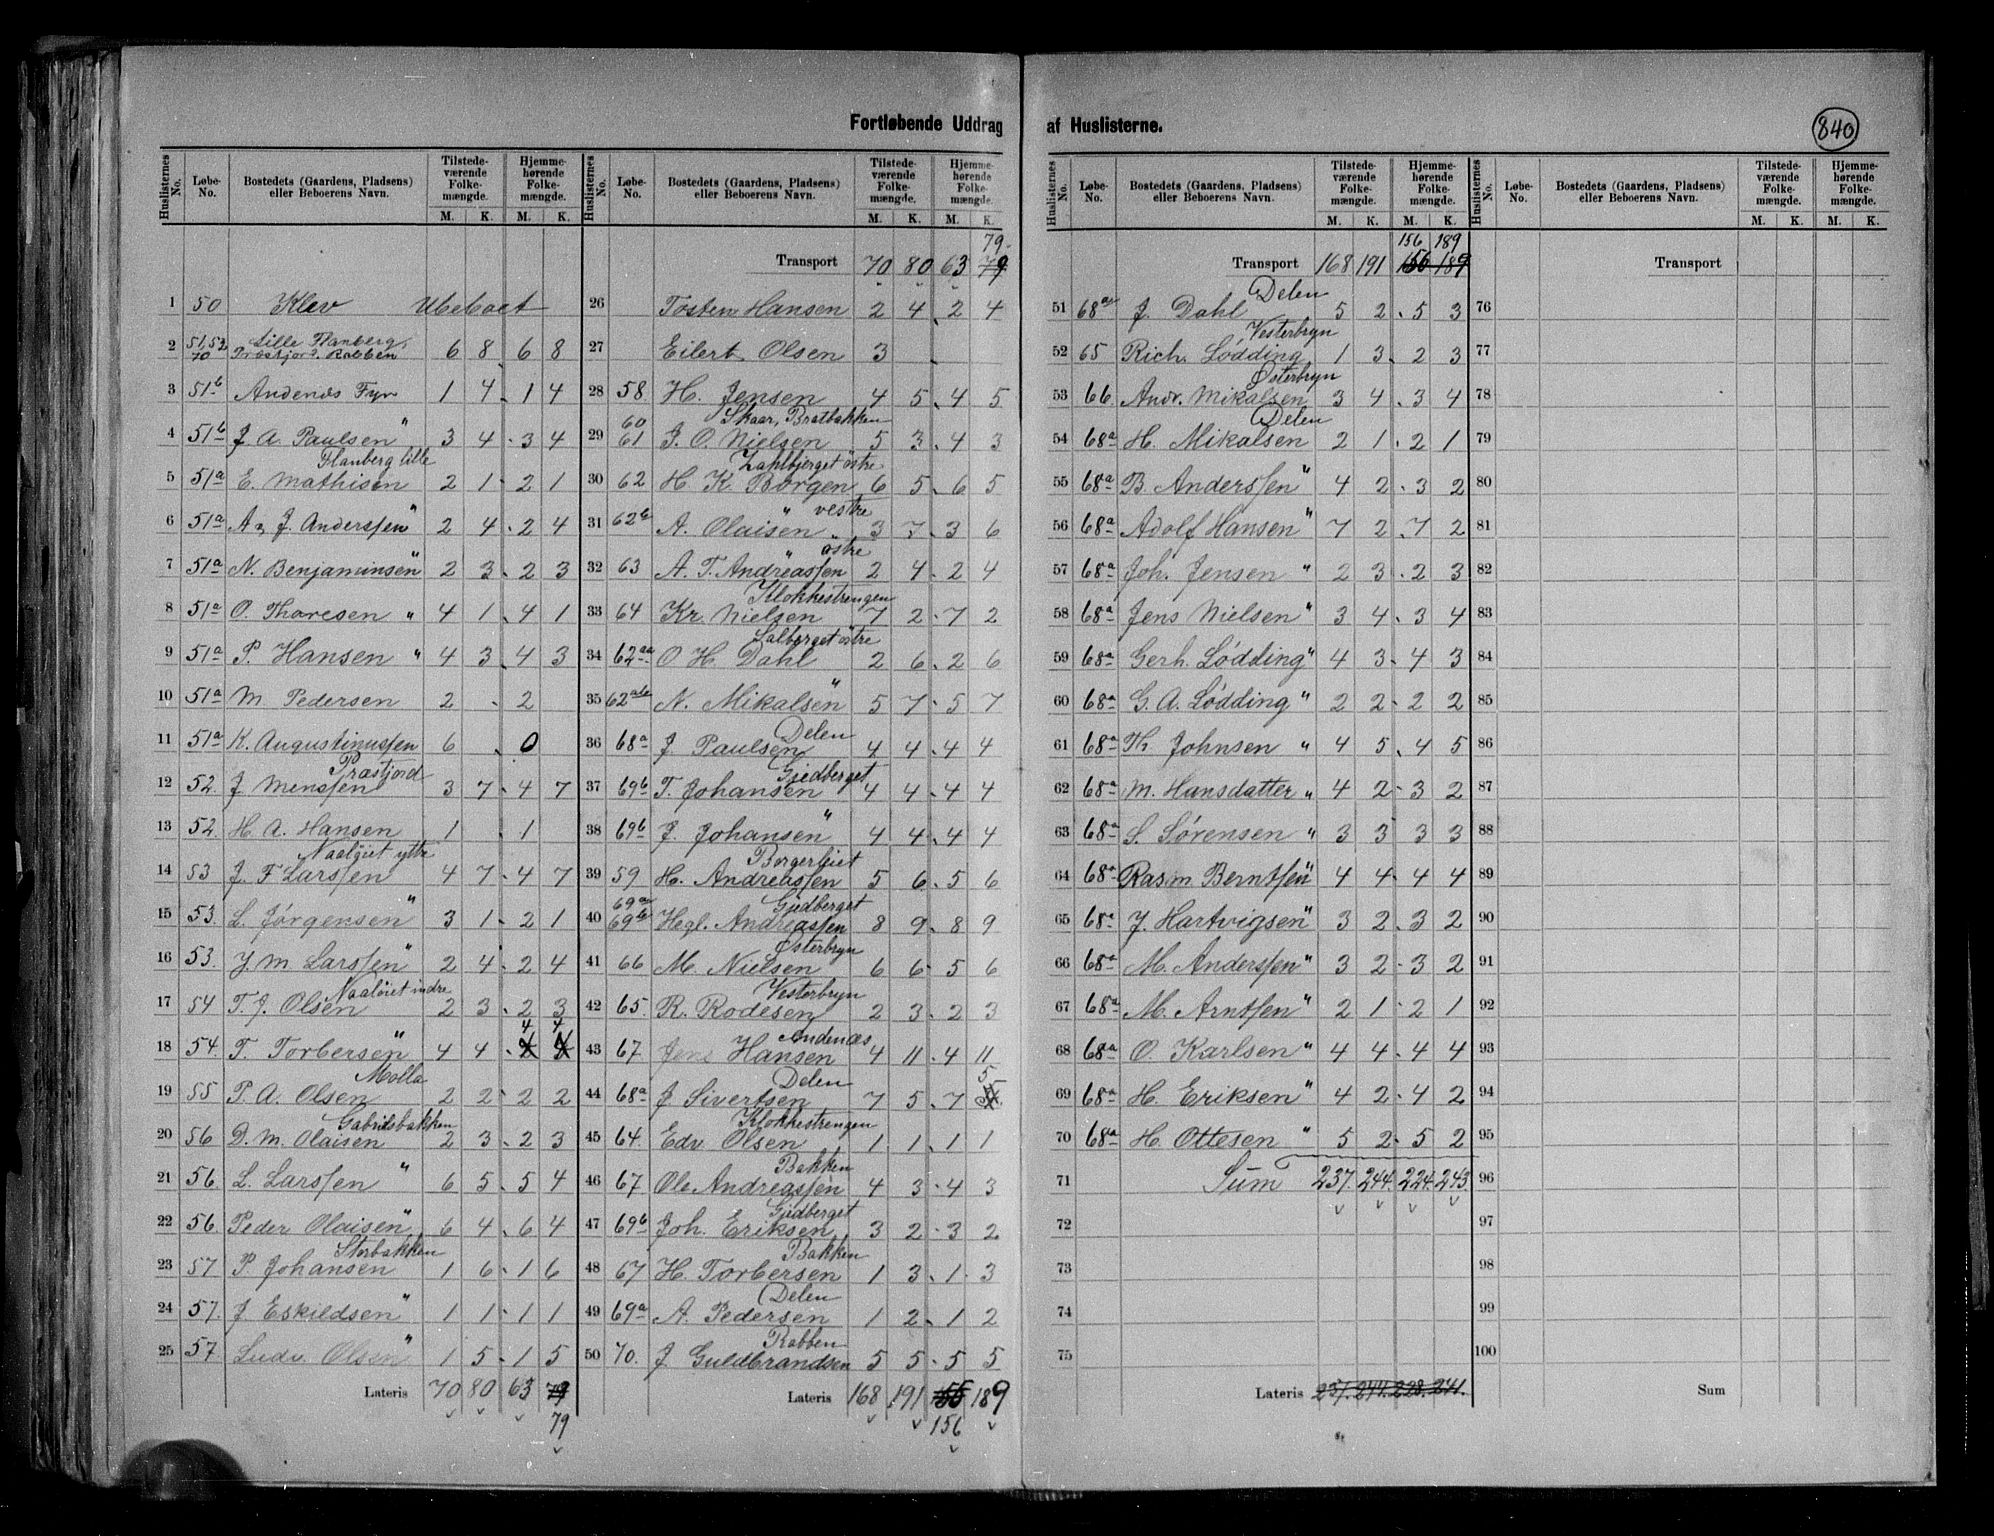 840
Fortløbende Uddrag af Huslisterne.
Huslisternes No. Løbe-No. Bostedets (Gaardens, Pladsens) eller Beboerens Navn. Tilstedeværende Folkemængde. M. K. Hjemmehørende Folkemængde. M. K.
1 50 Klev Ubeboet
2 51,52 70 Lille Præstfjord, Robben 6 8 6 8
3 51b Andenæs Fyr 1 4 1 4
4 51b J. A. Paulsen " 3 4 3 4
5 51a E. Mathisen 2 1 2 1
6 51a A. J. Anderssen " 2 4 2 4
7 51a N. Benjaminsen " 2 3 2 3
8 51a O. Thoresen " 4 1 4 1
9 51a P. Hansen " 4 3 4 3
10 51a M. Pedersen 2 2
11 51a K. Augustinussen 6 0
12 52. J. Menssen Præstfjord 3 7 4 7
13 52. H. A. Hansen 1 1
14 53 J. F. Larssen Naaløiet ytte 4 7 4 7
15 53. L. Jørgensen " 3 1 2 1
16 53. J. M. Larssen " 2 4 2 4
17 54 T. J. Olsen Naaløiet indre 2 3 2 3
18 54. T. Torbersen " 4 4 4 4
19 55 P. A. Olsen Molla 2 2 2 2
20 56 D. M. Olaisen Gabrielsbakken 2 3 2 3
21 56. L. Larssen " 6 5 5 4
22 56. Peder Olaisen " 6 4 6 4
23 57 P. Johansen Storbakken 1 6 1 6
24 57. J. Eskildsen " 1 1 1 1
25 57. Ludv. Olsen " 1 5 1 5
Lateris 70 80 63 79
79
Huslisternes No. Løbe-No. Bostedets (Gaardens, Pladsens) eller Beboerens Navn. Tilstedeværende Folkemængde. M. K. Hjemmehørende Folkemængde. M. K.
79
Transport 70 80 63 79
26 Tosten Hansen 2 4 2 4
27 Eilert Olsen 3
28 58. H. Jensen 4 5 4 5
29 60 61 J. O. Nielsen Skaar, Bratbakken 5 3 4 3
30 62 H. K. Borgen Zahlbjerget østre 6 5 6 5
31 62b A. Olaisen " vestre 3 7 3 6
32 63 A. T. Andreassen " østre 2 4 2 4
33 64 Kr. Nielsen Klokkestrengen 7 2 7 2
34 62aa O. H. Dahl Salberget østre 2 6 2 6
35 62ab N. Mikalsen " 5 7 5 7
36 68a J. Paulsen Delen 4 4 4 4
37 69b T. Johansen Gjedberget 4 4 4 4
38 69b J. Johansen " 4 4 4 4
39 59 H. Andreassen Borgerleiet 5 6 5 6
40 69a 69b Hegl. Andreassen Gjedberget 8 9 8 9
41 66 M. Nielsen Østerbryn 6 6 5 6
42 65. R. Rodesen Vesterbryn 2 3 2 3
43 67 Jens Hansen Andenæs 4 11 4 11
44 68a J. Sivertsen Delen 7 5 7 5
45 64. Edv. Olsen Klokkestrengen 1 1 1 1
46 67 Ole Andreassen Bakken 4 3 4 3
47 69b Joh. Eriksen Gjedberget 3 2 3 2
48 67 H. Torbersen Bakken 1 3 1 3
49 69a A. Pedersen Delen 1 2 1 2
50 70. J. Guldbrandsen Robben 5 5 5 5
Lateris 168 191 155 189
156
Huslisternes No. Løbe-No. Bostedets (Gaardens, Pladsens) eller Beboerens Navn. Tilstedeværende Folkemængde. M. K. Hjemmehørende Folkemængde. M. K.
156 189
Transport 168 191 156 189
51 68a J. Dahl Delen 5 2 5 3
52 65 Rich. Lødding Vesterbryn 1 3 2 3
53 66. Andr. Mikalsen Østerbryn 3 4 3 4
54 68a H. Mikalsen Delen 2 1 2 1
55 68a B. Anderssen " 4 2 3 2
56 68a Adolf Hansen " 7 2 7 2
57 68a Joh. Jensen " 2 3 2 3
58 68a Jens Nielsen " 3 4 3 4
59 68a Gerh. Lødding " 4 3 4 3
60 68a G. A. Lødding " 2 2 2 2
61 68a Th. Johnsen " 4 5 4 5
62 68a M. Hansdatter " 4 2 3 2
63 68a S. Sørensen " 3 3 3 3
64 68a Rasm. Berntsen " 4 4 4 4
65 68a J. Hartvigsen " 3 2 3 2
66 68a M. Anderssen " 3 2 3 2
67 68a M. Arntsen " 2 1 2 1
68 68a O. Karlsen " 4 4 4 4
69 68a H. Eriksen " 4 2 4 2
70 68a H. Ottesen " 5 2 5 2
71 Sum 237. 244. 224. 243.
72
73
74
75
Lateris 237. 244. 228. 241.
Huslisternes No. Løbe-No. Bostedets (Gaardens, Pladsens) eller Beboerens Navn. Tilstedeværende Folkemængde. M. K. Hjemmehørende Folkemængde. M. K.
Transport
76
77
78
79
80
81
82
83
84
85
86
87
88
89
90
91
92
93
94
95
96
97
98
99
100
Sum